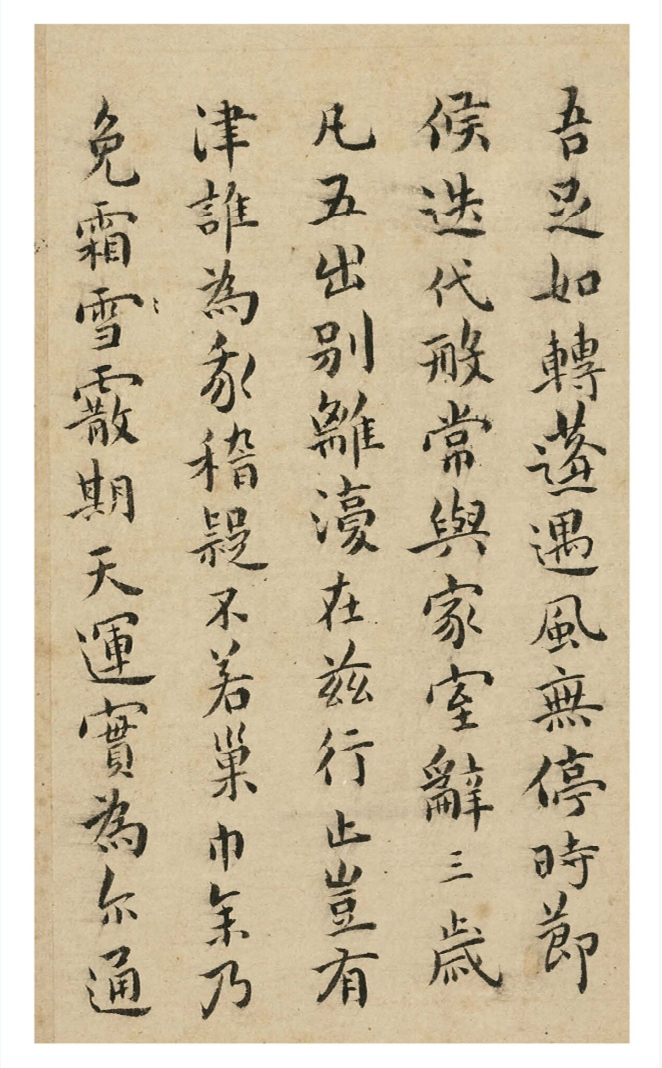 吾足如轉蓬遇風無停時節
候迭代常與家室辭三歲
凡五出別離漫在茲行止豈有
津誰為我稽疑不若巢乃
免霜雪霰期天運實為尔通